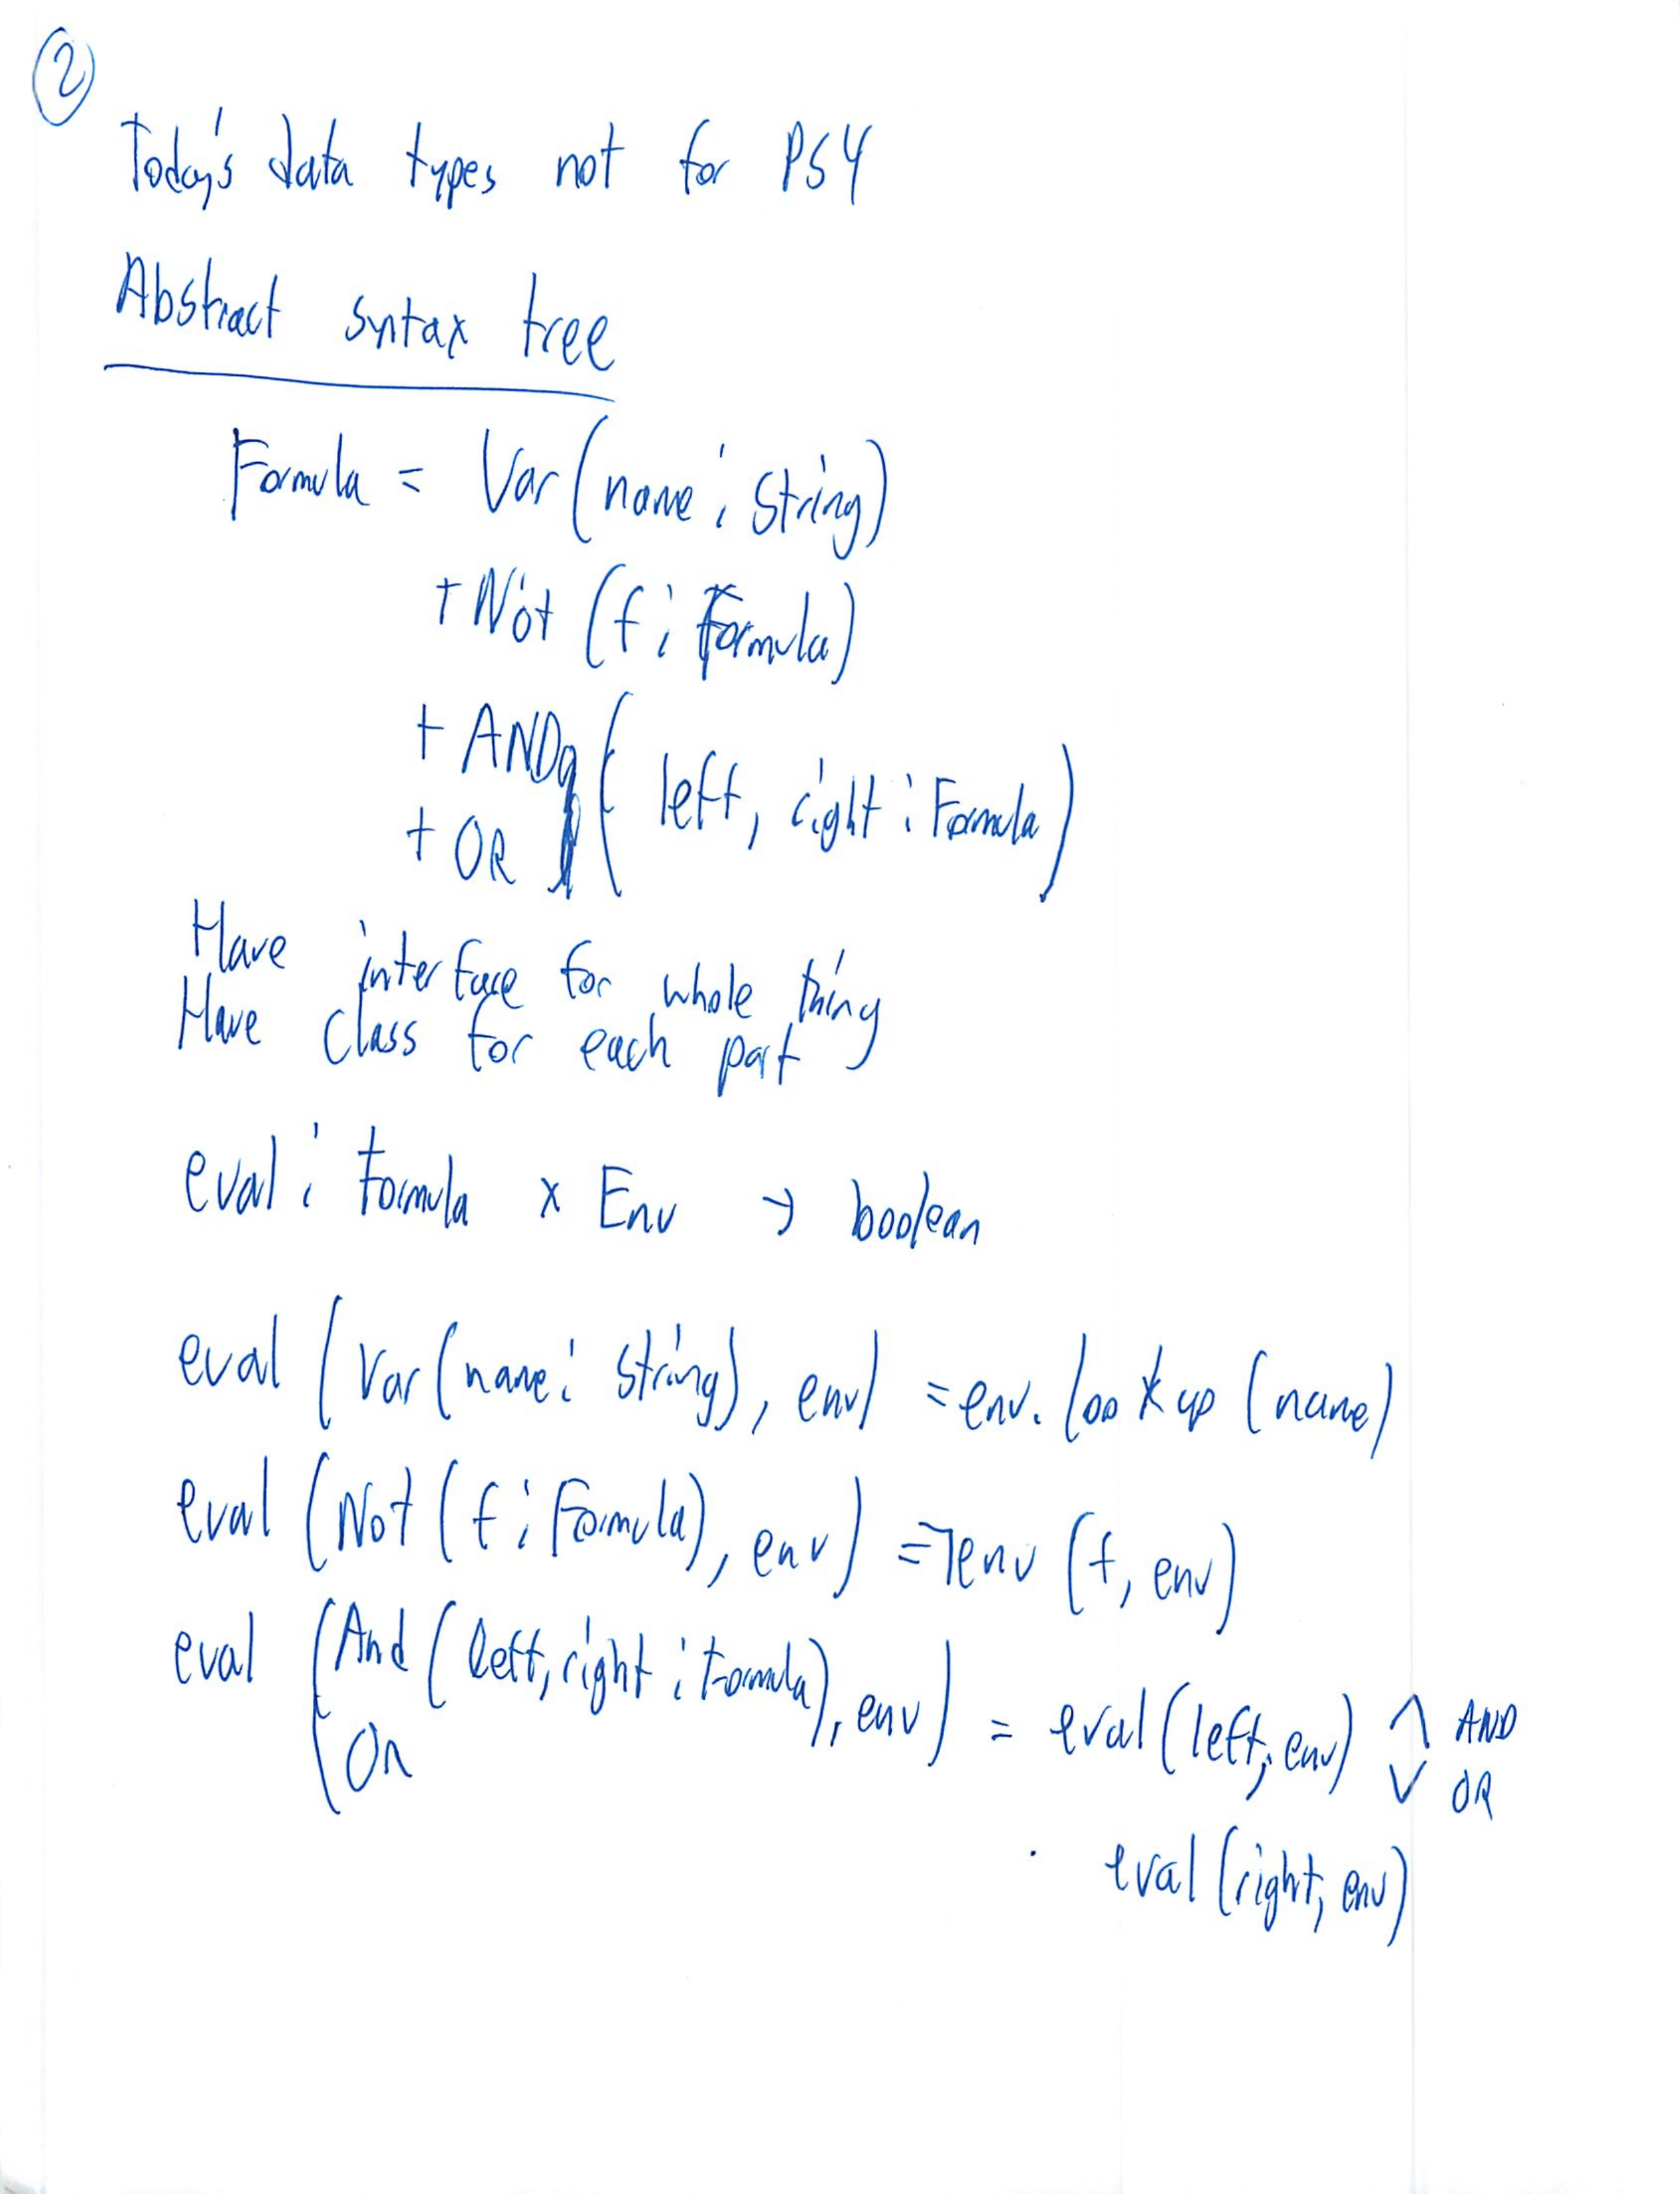 2
Today's data types not for PS4
Abstract syntax tree
Formula = Var (name: String)
+ Not (f: Formula)
+ AND
+ OR } ( left, right : Formula)
Have interface for whole thing
Have class for each part
eval : Formula x Env → boolean
eval (Var (name: String), env) = env.lookup (name)
eval (Not (f: Formula), env) = ¬env (f, env)
eval (And (left, right : Formula), env) = eval (left, env) ∧ AND
Or ∨ OR
eval (right, env)